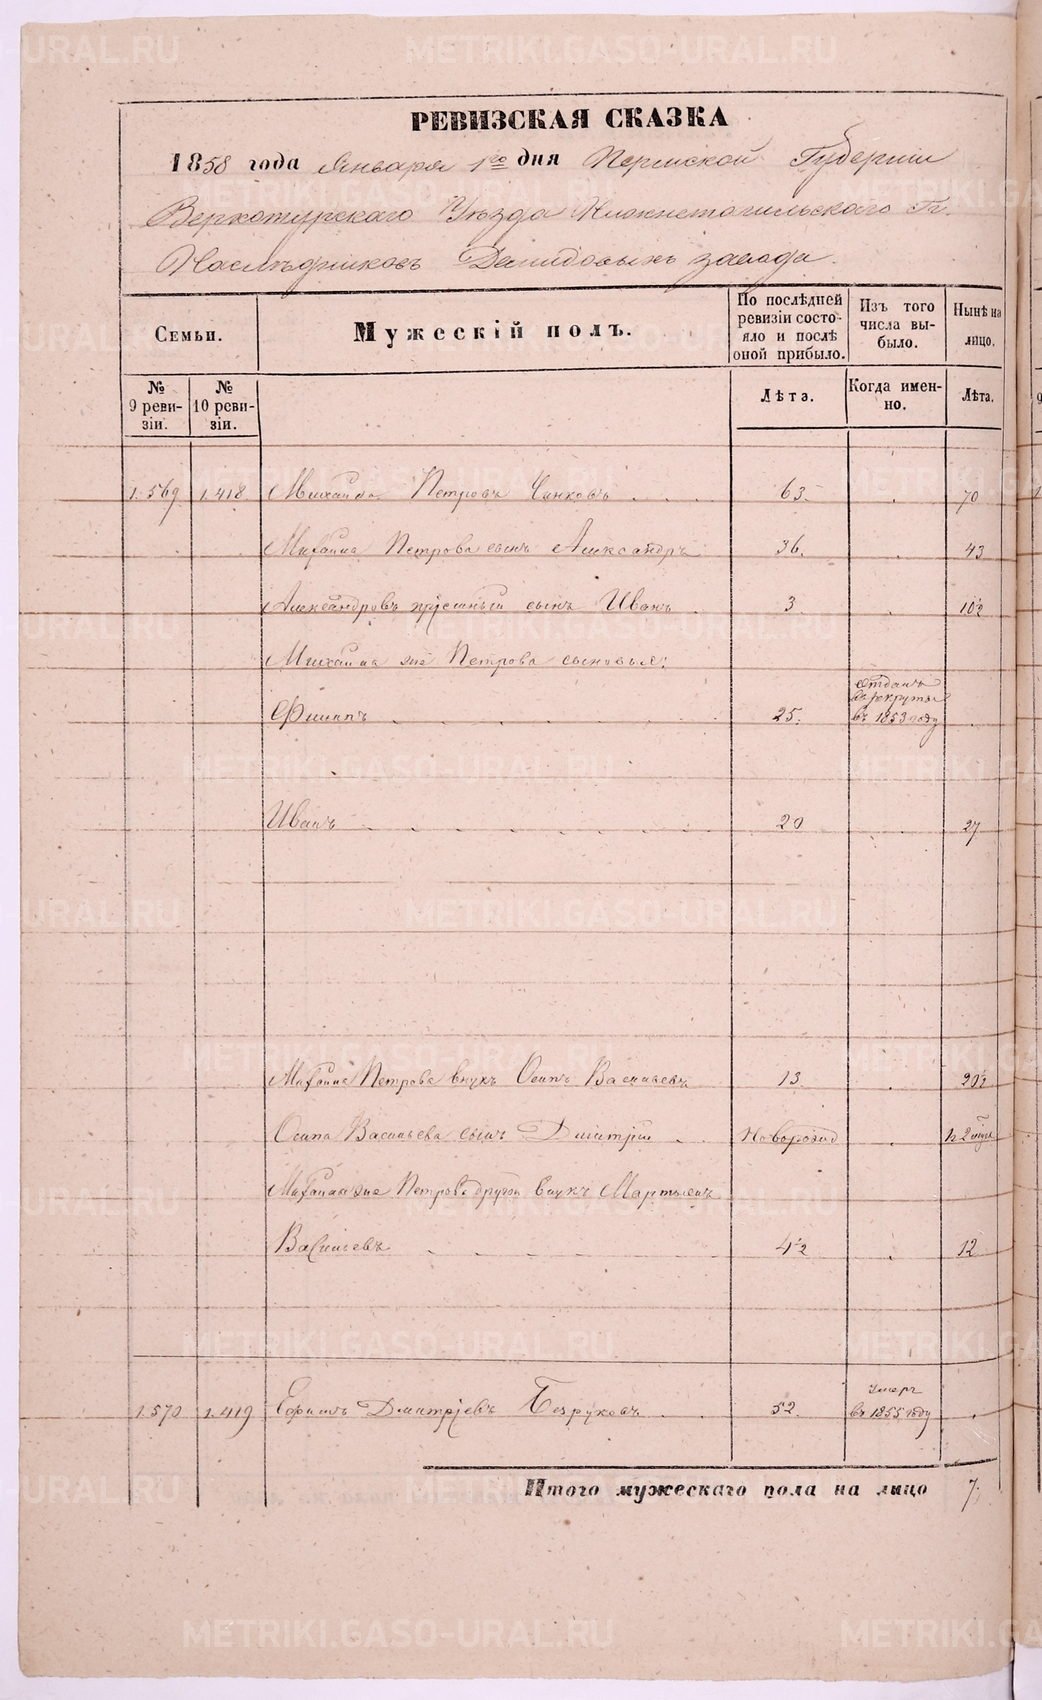 РЕВИЗСКАЯ СКАЗКА
1858 года Января 1го дня Пермской Губернии
Верхотурскаго Уѣзда Нижнетагильскаго Гг.
Наслѣдниковъ Демидовыхъ завода.
Семьи.
Мужескій полъ.
По послѣдней ревизіи состояло и послѣ оной прибыло.
Изъ того числа выбыло.
Нынѣ на лицо.
№ 9 ревизіи.
№ 10 ревизіи.
Лѣта.
Когда именно.
Лѣта.
1.569 1.418 Михайло Петровъ 63. 70
Михайла Петрова сынъ Александръ 36. 43
Александровъ сынъ Иванъ 3 10½
Михайла же Петрова сыновья:
Филипъ 25. Отданъ въ рекруты въ 1853 году
Иванъ 20 27
Михайла Петрова внукъ Осипъ Васильевъ 13 20½
Осипа Васильева сынъ Дмитрій Новорожд
Михайла же Петрова другой внукъ Мартынъ
Васильевъ 4½ 12
1.570 1.419 Ефимъ Дмитріевъ Безруковъ 52. Умеръ въ 1855 году
Итого мужескаго пола на лицо 7.
METRIKI.GASO-URAL.RU